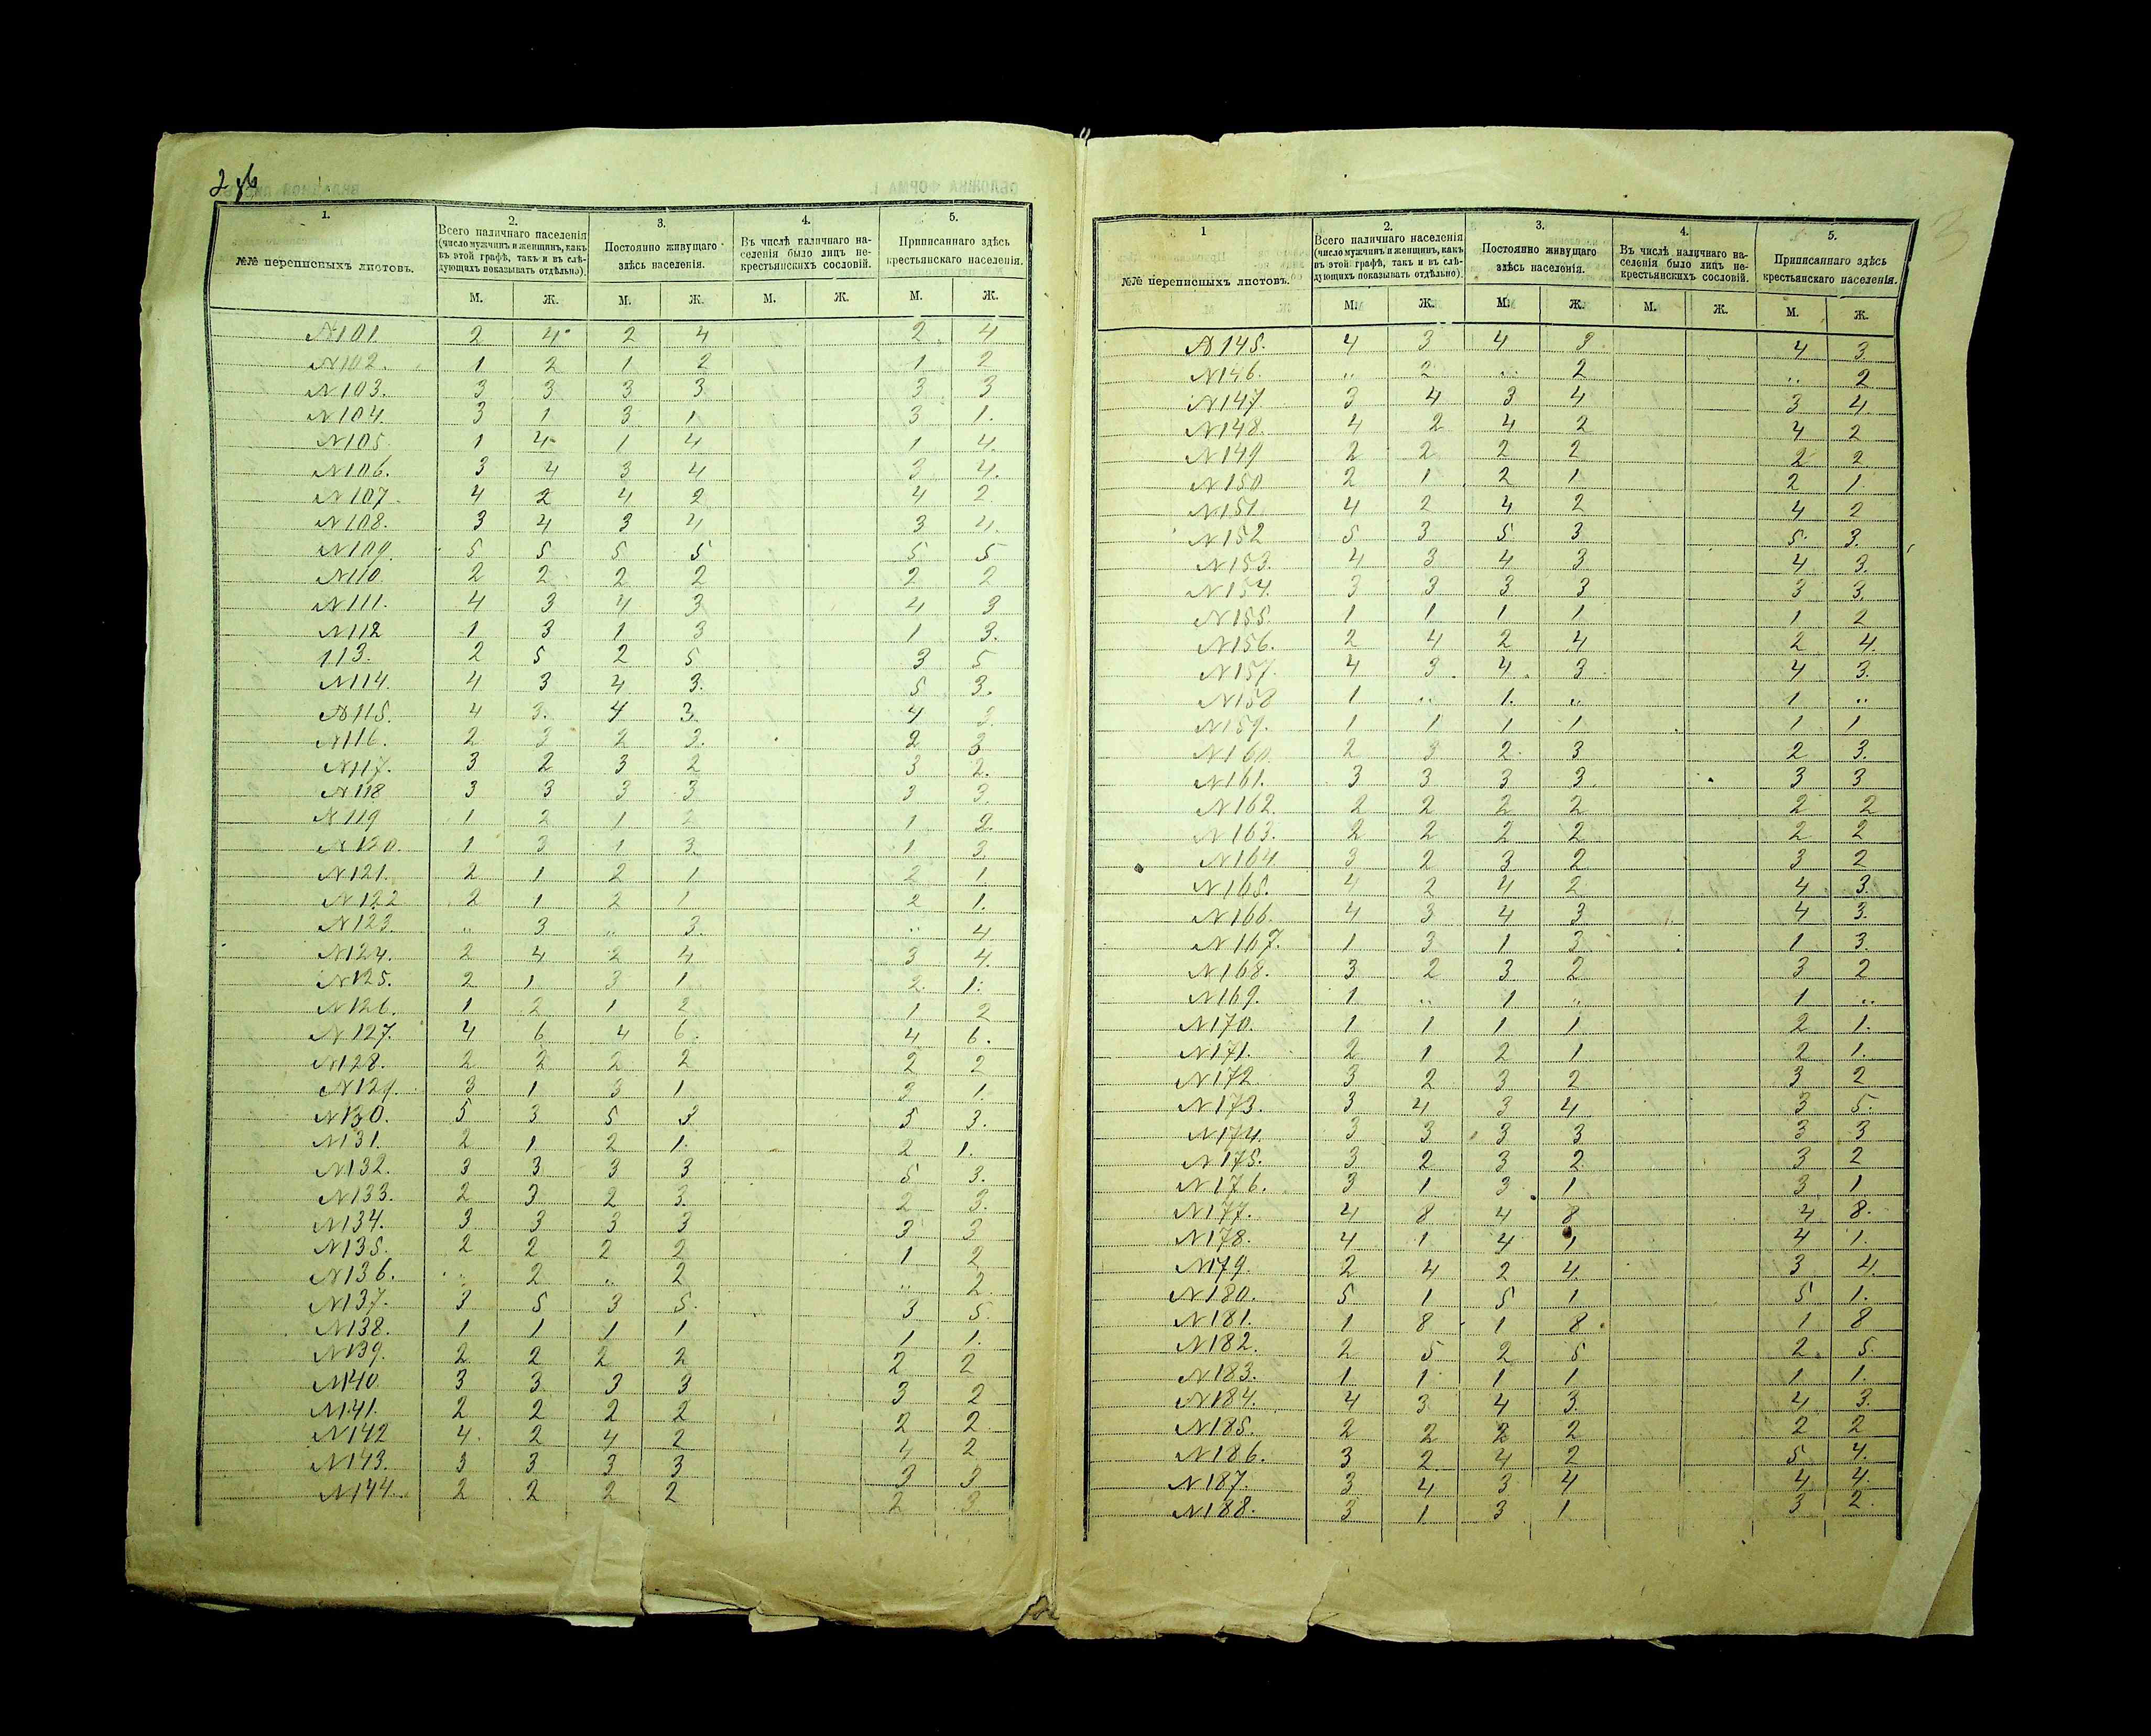 2 об
1. 2. 3. 4. 5.
№№ переписныхъ листовъ. Всего наличнаго населенія (число мужчинъ и женщинъ, какъ въ этой графѣ, такъ и въ слѣдующихъ показывать отдѣльно). Постоянно живущаго здѣсь населенія. Въ числѣ наличнаго населенія было лицъ некрестьянскихъ сословій. Приписаннаго здѣсь крестьянскаго населенія.
М. Ж. М. Ж. М. Ж. М. Ж.
№101 2 4 2 4 2 4
№102. 1 2 1 2 1 2
№103. 3 3 3 3 3 3
№104. 3 1 3 1 3 1.
№105 1 4 1 4 1 4.
№106. 3 4 3 4 3 4.
№107. 4 2 4 2 4 2
№108. 3 4 3 4 3 4.
№109. 5 5 5 5 5 5
№110 2 2 2 2 2 2
№111. 4 3 4 3 4 3
№112 1 3 1 3 1 3.
113. 2 5 2 5 3 5
№114. 4 3 4 3. 5 3.
№115. 4 3. 4 3. 4 3.
№116. 2 3 2 3. 2 3
№117. 3 2 3 2 3 2.
№118 3 3 3 3 3 3.
№119 1 2 1 2 1 2.
№120. 1 3 1 3 1 3
№121. 2 1 2 1 2 1
№122 2 1 2 1 2 1.
№123. „ 3 „ 3. „ 4
№124. 2 4 2 4 3 4.
№125. 2 1 3 1 2. 1.
№126. 1 2 1 2 1 2
№127. 4 6 4 6. 4 6.
№128. 2 2 2 2 2 2
№129. 3 1 3 1 3 1.
№130. 5 3 5 3 5 3.
№131. 2 1 2 1. 2 1.
№132. 3 3 3 3 5 3.
№133. 2 3 2 3. 2 3.
№134. 3 3 3 3 3 3
№135. 2 2 2 2 1 2
№136. „ 2 „ 2 „ 2
№137. 3 5 3 5. 3 5.
№138. 1 1 1 1 1 1.
№139. 2 2 2 2 2 2
№140 3 3 3 3 3 2
№141. 2 2 2 2 2 2
№142 4. 2 4 2 4 2
№143. 3 3 3 3 3 3
№144. 2 2 2 2 2 3
3
1 2. 3. 4. 5.
№№ переписныхъ листовъ. Всего наличнаго населенія (число мужчинъ и женщинъ, какъ въ этой графѣ, такъ и въ слѣдующихъ показывать отдѣльно). Постоянно живущаго здѣсь населенія. Въ числѣ наличнаго населенія было лицъ некрестьянскихъ сословій. Приписаннаго здѣсь крестьянскаго населенія.
М. Ж. М. Ж. М. Ж. М. Ж.
№145. 4 3 4 3. 4 3.
№146. „ 2 „ 2 „ 2
№147 3 4 3 4 3 4.
№148. 4 2 4 2 4 2
№149 2 2 2 2 2 2
№150 2 1 2 1 2 1.
№151 4 2 4 2 4 2
№152 5 3 5 3 5 3.
№153. 4 3 4 3 4 3.
№154. 3 3 3 3 3 3.
№155. 1 1 1 1 1 2
№156. 2 4 2 4 2 4.
№157. 4 3. 4. 3 4 3.
№158 1 „ 1. „ 1 „
№159. 1 1 1 1 1 1
№160. 2 3 2. 3 2 3.
№161. 3 3 3 3. 3 3
№162. 2 2 2 2 2 2
№163. 2 2 2 2 2 2
№164. 3 2 3 2 3 2
№165. 4 2 4 2 4 3.
№166. 4 3 4 3 4 3.
№167. 1 3 1 3 1 3.
№168. 3 2 3 2 3 2
№169. 1 „ 1 „ 1 „
№170. 1 1 1 1 2 1.
№171. 2 1 2 1 2 1.
№172 3 2 3 2 3 2
№173. 3 4 3 4 3 5.
№174. 3 3 3 3 3 3
№175. 3 2 3 2 3 2
№176. 3 1 3 1 3 1
№177. 4 8 4 8 4 8.
№178. 4 1 4 1 4 1.
№179. 2 4 2 4 3 4.
№180. 5 1 5 1 5 1.
№181. 1 8 1 8 1 8
№182. 2 5 2 5 2. 5
№183. 1 1 1 1 1 1.
№184. 4 3 4 3 4 3.
№185. 2 2 2 2 2 2
№186. 3 2 4 2 5 4.
№187. 3 4 3 4 4 4.
№188. 3 1 3 1 3 2.